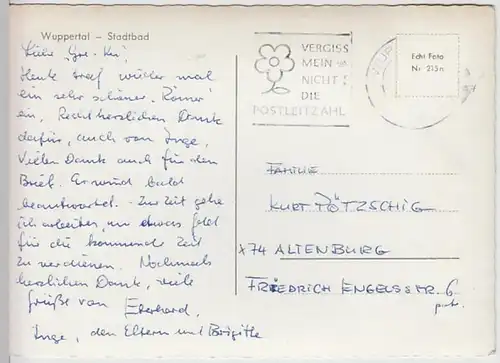 Wuppertal – Stadtbad
Liebe
Heute traf wieder mal
ein sehr schöner "Römer"
ein. Recht herzlichen Dank
dafür, auch von Inge.
Vielen Dank auch für den
Brief. Er wird bald
beantwortet. - Zur Zeit gehe
ich arbeiten, um etwas Geld
für die kommende Zeit
zu verdienen. Nochmals
herzlichen Dank, viele
Grüße von Eberhard,
Inge, den Eltern und Brigitte
VERGISS
MEIN
NICHT
DIE
POSTLEITZAHL
WUP
Echt Foto
Nr. 215n
FAMILIE
KURT PÖTZSCHIG
X74 ALTENBURG
FRIEDRICH ENGELSSTR. 6